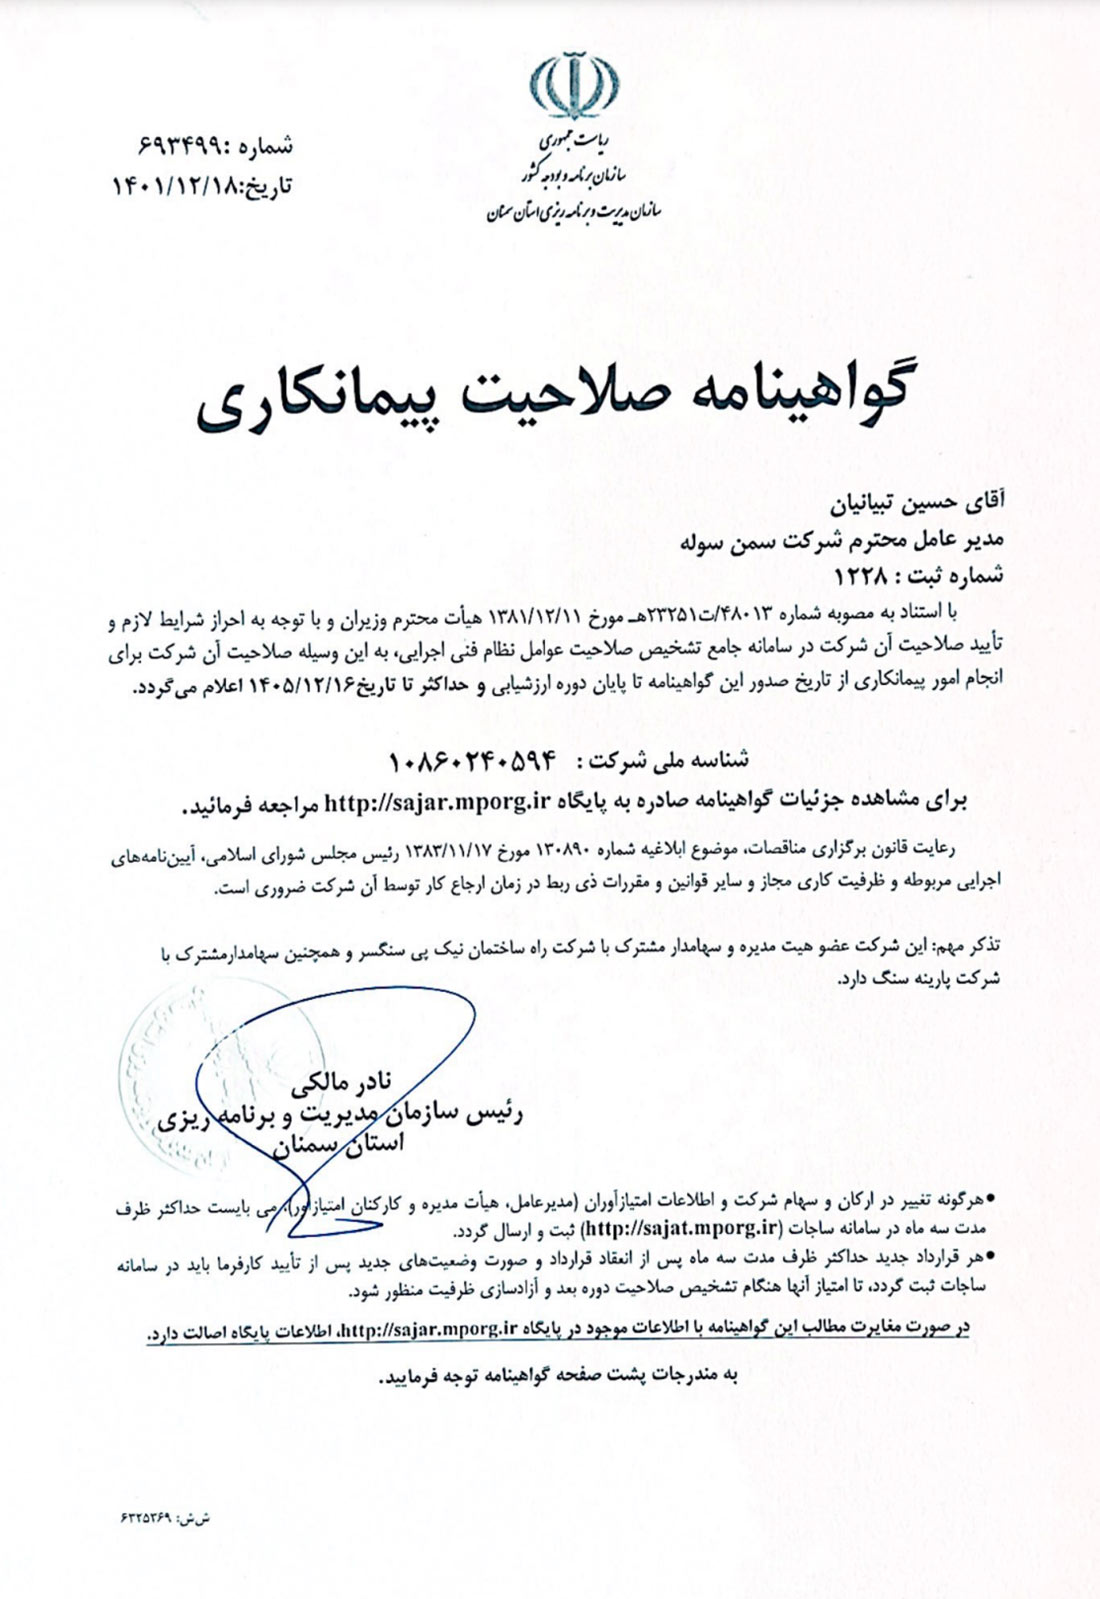 ریاست جمهوری
سازمان برنامه و بودجه کشور
سازمان مدیریت و برنامه ریزی استان سمنان
شماره :۶۹۳۴۹۹
تاریخ:۱۴۰۱/۱۲/۱۸
گواهینامه صلاحیت پیمانکاری
آقای حسین تبیانیان
مدیر عامل محترم شرکت سمن سوله
شماره ثبت : ۱۲۲۸
با استناد به مصوبه شماره ۴۸۰۱۳/ت۲۳۲۵۱هـ مورخ ۱۳۸۱/۱۲/۱۱ هیأت محترم وزیران و با توجه به احراز شرایط لازم و
تأیید صلاحیت آن شرکت در سامانه جامع تشخیص صلاحیت عوامل نظام فنی اجرایی، به این وسیله صلاحیت آن شرکت برای
انجام امور پیمانکاری از تاریخ صدور این گواهینامه تا پایان دوره ارزشیابی و حداکثر تا تاریخ۱۴۰۵/۱۲/۱۶ اعلام می‌گردد.
شناسه ملی شرکت : ۱۰۸۶۰۲۴۰۵۹۴
برای مشاهده جزئیات گواهینامه صادره به پایگاه http://sajar.mporg.ir مراجعه فرمائید.
رعایت قانون برگزاری مناقصات، موضوع ابلاغیه شماره ۱۳۰۸۹۰ مورخ ۱۳۸۳/۱۱/۱۷ رئیس مجلس شورای اسلامی، آیین‌نامه‌های
اجرایی مربوطه و ظرفیت کاری مجاز و سایر قوانین و مقررات ذی ربط در زمان ارجاع کار توسط آن شرکت ضروری است.
تذکر مهم: این شرکت عضو هیت مدیره و سهامدار مشترک با شرکت راه ساختمان نیک پی سنگسر و همچنین سهامدارمشترک با
شرکت پارینه سنگ دارد.
نادر مالکی
رئیس سازمان مدیریت و برنامه ریزی
استان سمنان
●هرگونه تغییر در ارکان و سهام شرکت و اطلاعات امتیازآوران (مدیرعامل، هیأت مدیره و کارکنان امتیازآور)، می بایست حداکثر ظرف
مدت سه ماه در سامانه ساجات (http://sajat.mporg.ir) ثبت و ارسال گردد.
●هر قرارداد جدید حداکثر ظرف مدت سه ماه پس از انعقاد قرارداد و صورت وضعیت‌های جدید پس از تأیید کارفرما باید در سامانه
ساجات ثبت گردد، تا امتیاز آنها هنگام تشخیص صلاحیت دوره بعد و آزادسازی ظرفیت منظور شود.
در صورت مغایرت مطالب این گواهینامه با اطلاعات موجود در پایگاه http://sajar.mporg.ir، اطلاعات پایگاه اصالت دارد.
به مندرجات پشت صفحه گواهینامه توجه فرمایید.
ش‌ش: ۶۳۲۵۳۶۹